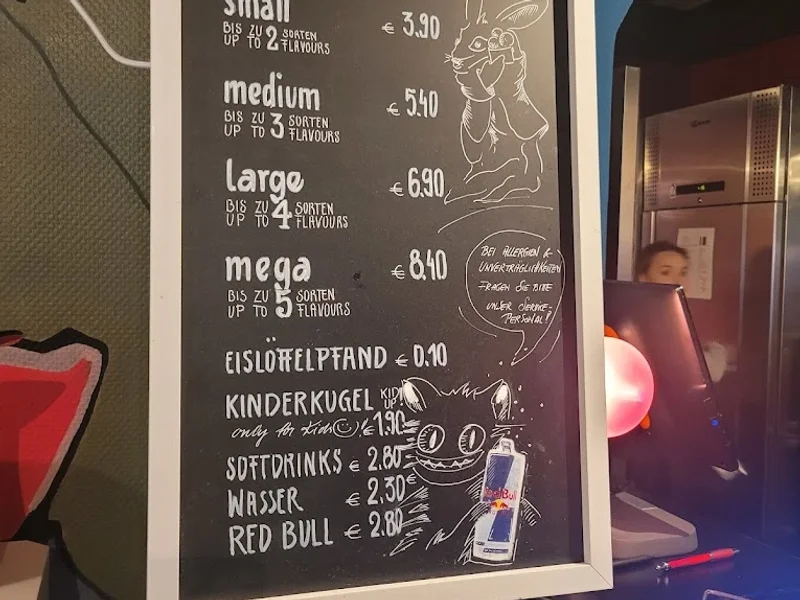 small € 3.90
BIS ZU 2 SORTEN
UP TO FLAVOURS
medium € 5.40
BIS ZU 3 SORTEN
UP TO FLAVOURS
large € 6.90
BIS ZU 4 SORTEN
UP TO FLAVOURS
mega € 8.40
BIS ZU 5 SORTEN
UP TO FLAVOURS
BEI ALLERGIEN &
UNVERTRÄGLICHKEITEN
FRAGEN SIE BITTE
UNSER SERVICE-
PERSONAL!
EISLÖFFELPFAND € 0.10
KINDERKUGEL
only for kids € 1.90
SOFTDRINKS € 2.80
WASSER € 2.30
RED BULL € 2.80
Red Bull